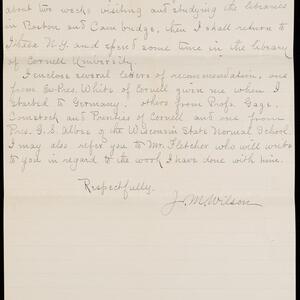 about two weeks visiting and studying the libraries
in Boston and Cambridge, then I shall return to
Ithaca N.Y. and spend some time in the library
of Cornell University.
I enclose several letters of recommendation, one
from Ex-Pres. White of Cornell given me when I
started to Germany. others from Profs. Gage,
Comstock and Prentiss of Cornell and one from
Pres. G. S. Albee of the Wisconsin State Normal School.
I may also refer you to Mr. Fletcher who will write
to you in regard to the work I have done with him.
Respectfully,
J. M. Wilson